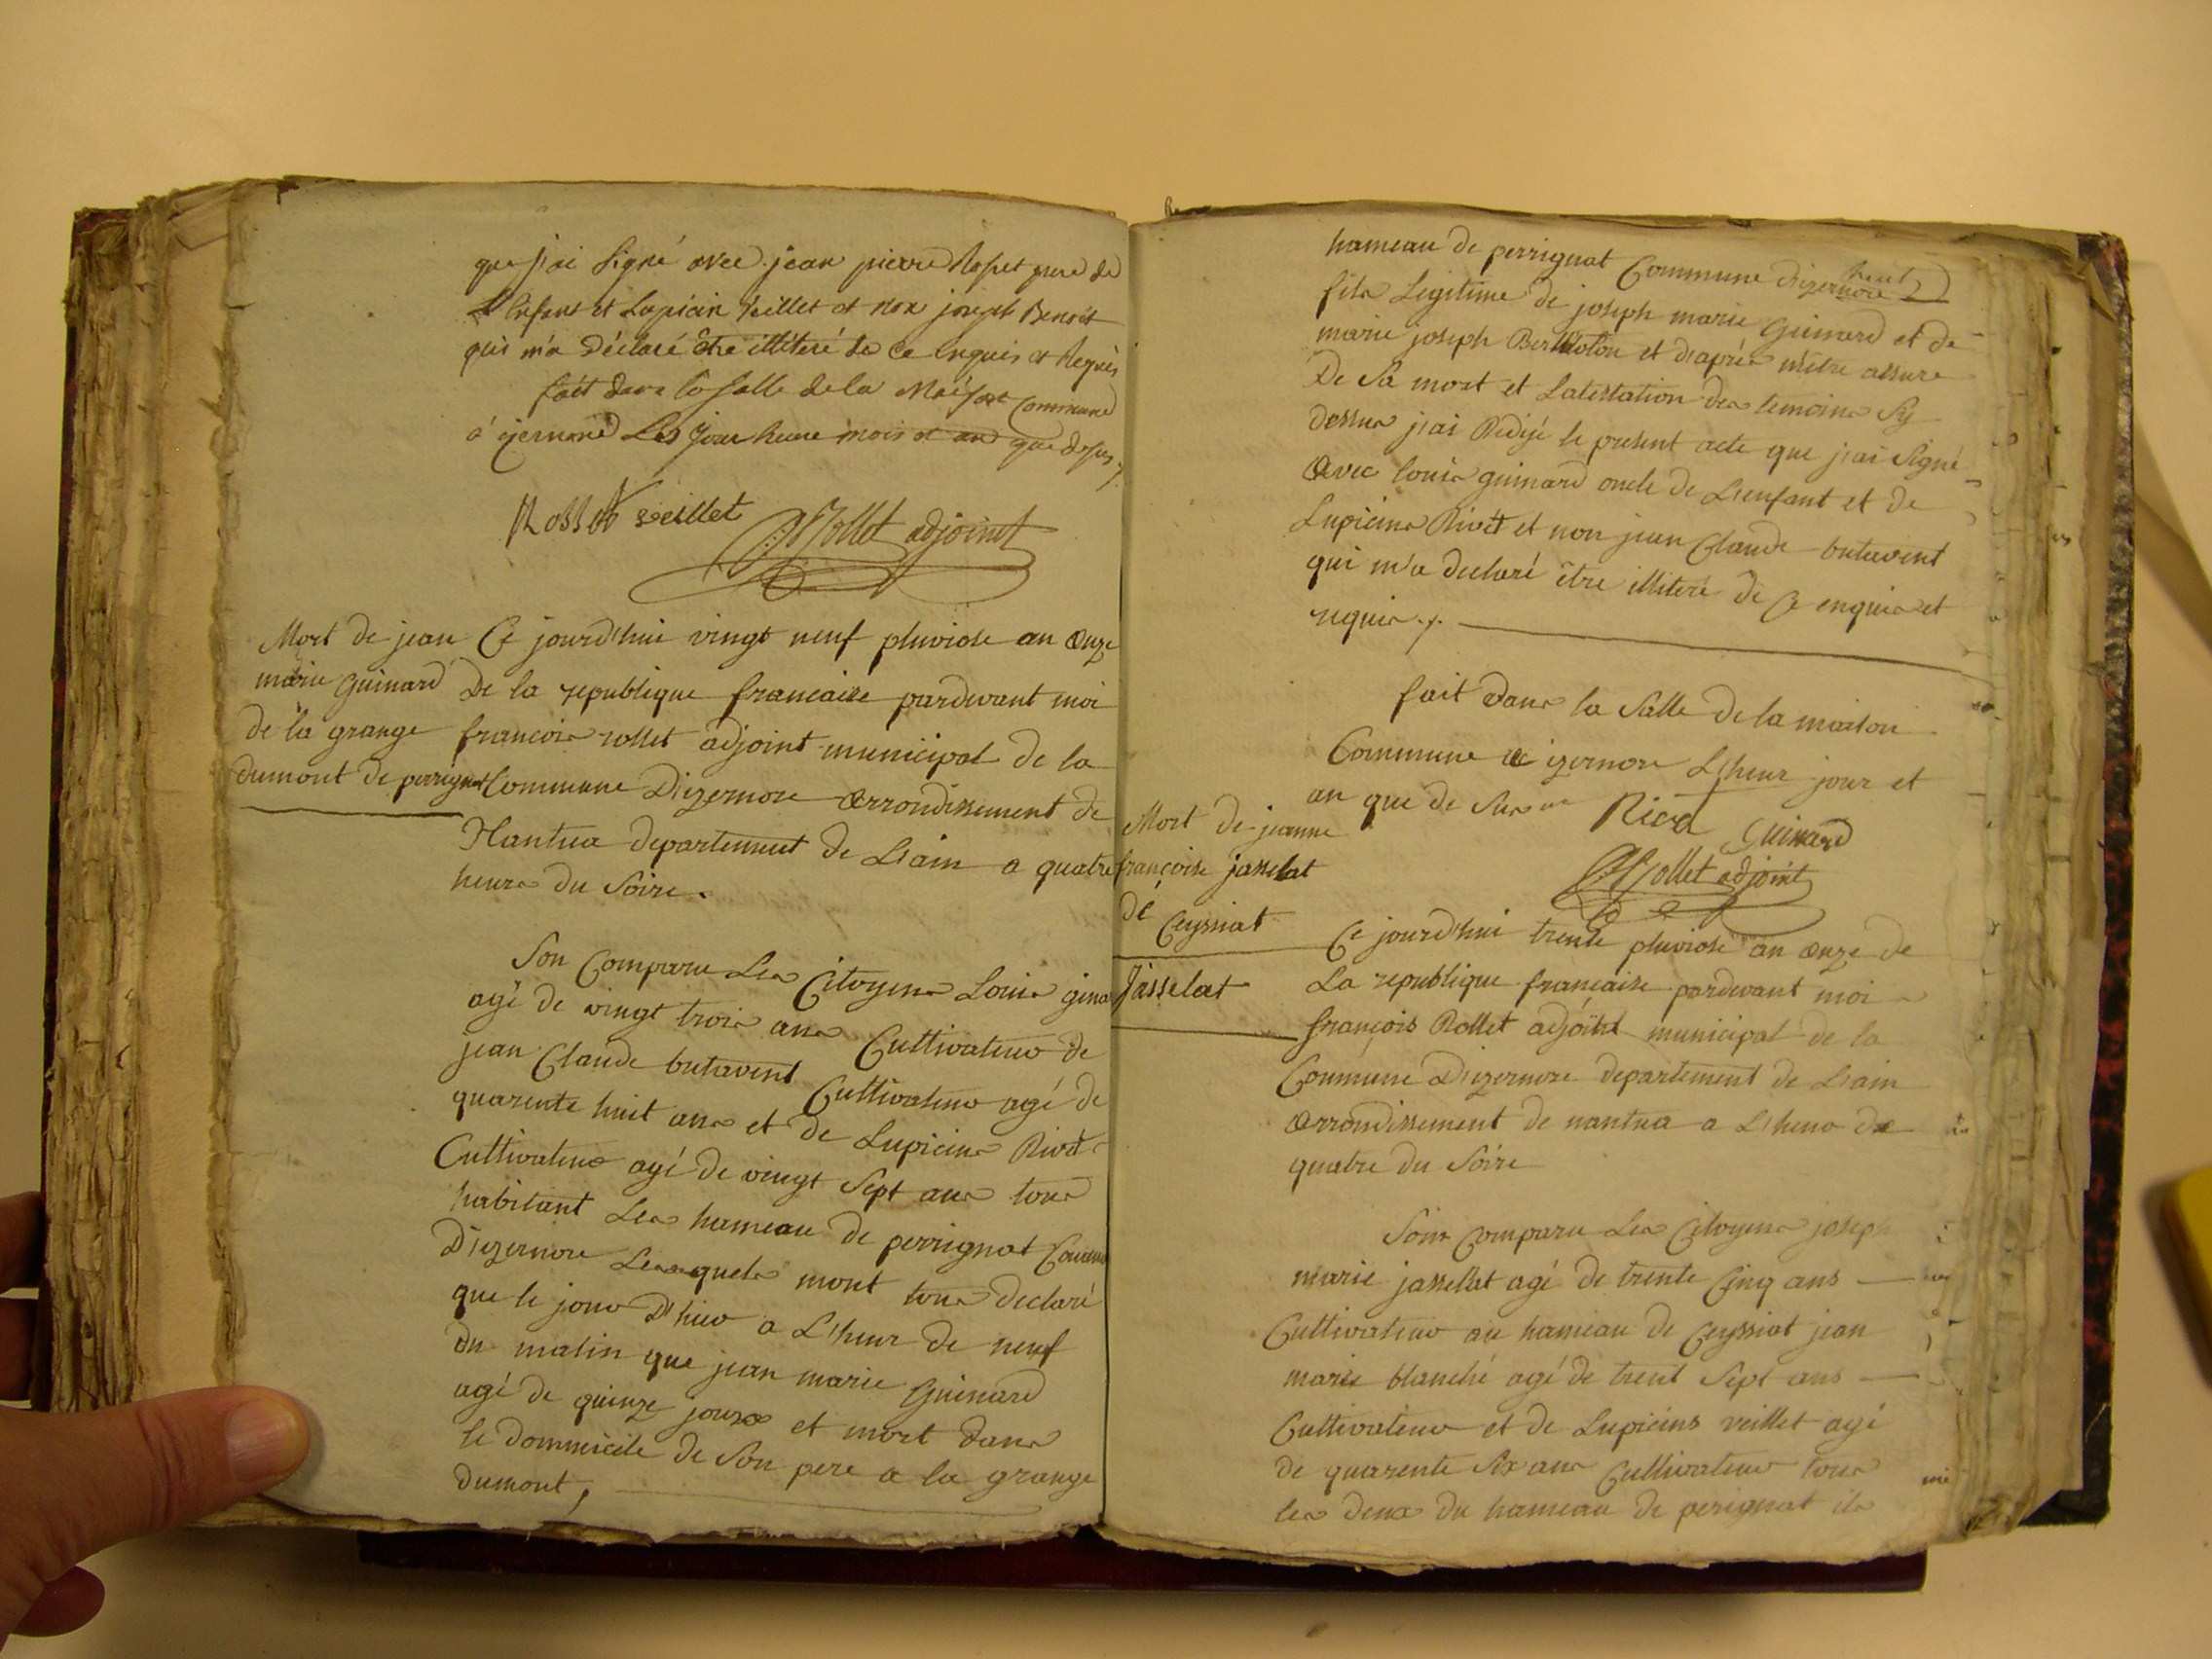 que j'ai signé avec jean pierre Rosset pere de
L'enfant et Lupicin veillet et non joseph Benoit
qui m'a déclaré être illiteré de ce enquis et Requis
fait dans la salle de la Maison Commune
a izernore Les jour heure mois et an que dessus
Rosset veillet
Rollet adjoinct
Mort de jean
marie guinard
de la grange
dumont de perrignat
Ce jourd'hui vingt neuf pluviose an onze
De la republique francaise pardevant moi
francois rollet adjoint municipal de la
Commune D'izernore arrondissement de
Nantua departement de L'ain a quatre
heures du Soire.
Son Comparu Les Citoyens Louis gina
agé de vingt trois ans Cultivateur de
jean Claude butavent Cultivateur agé de
quarente huit ans et de Lupicins Rivet
Cultivateur agé de vingt Sept ans tous
habitant Les hameau de perrignat Commune
D'izernore Lesquels mont tous declaré
que le jour D'hier a L'heur de neuf
du matin que jean marie Guinard
agé de quinze jours et mort dans
le dommicile de Son pere a la grange
dumont,
hameau de perrignat Commune dizernore
fils Legitime de joseph marie guinard et de
marie joseph Berthtolon et d'après m'être assure
De Sa mort et Latestation des temoins Sy
dessus j'ai Redijé le present acte que j'ai Signé
avec louis guinard oncle de L'enfant et de
Lupicins Rivet et non jean Claude butavent
qui m'a declaré être illiteré de Ce enquis et
requis.
fait dans la Salle de la maison
Commune de izernore L'heur jour et
an que de Sus
guinard
Rollet adjoint
Mort de jeanne
françoise jasselat
de Ceyssiat
Jasselat
Ce jourd'hui trente pluviose an onze de
La republique francaise pardevant moi
françois Rollet adjoint municipal de la
Commune D'izernore departement de L'ain
arrondissement de nantua a L'heur de
quatre du Soire
Son Comparu Les Citoyens joseph
marie jasselat agé de trente Cinq ans
Cultivateur au hameau de Ceyssiat jean
marie blanché agé de trent Sept ans
Cultivateur et de Lupicins veillet agé
de quarente Six ans Cultivateur tous
les deux du hameau de perignat ils